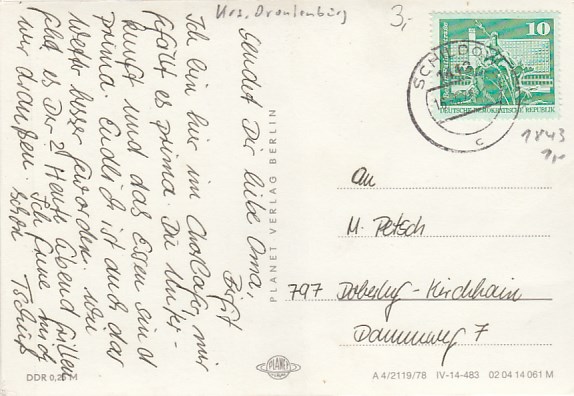 Krs. Oranienburg
3,-
10
DEUTSCHE DEMOKRATISCHE REPUBLIK
SCHILDOW
c
1843
1,-
sendet Dir liebe Oma,
Birgit
Ich bin hier im
gefällt es prima. Die Unter-
kunft und das Essen sind
prima. Endlich ist auch das
Wetter besser geworden. von
es Dir? Heute Abend grillen
wir draußen. Ich freue mich
schon Tschüß
PLANET VERLAG BERLIN
An
M. Petsch
797 Doberlug-Kirchhain
Dammweg 7
PLANET
DDR 0,25 M
A 4/2119/78 IV-14-483 02 04 14 061 M